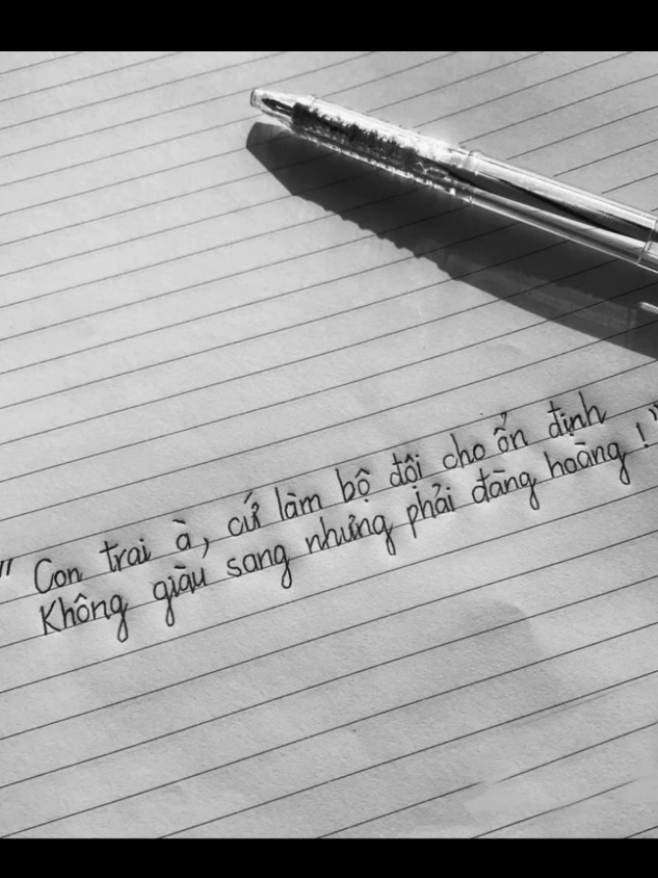 " Con trai à, cứ làm bộ đội cho ổn định
Không giàu sang nhưng phải đàng hoàng ! "